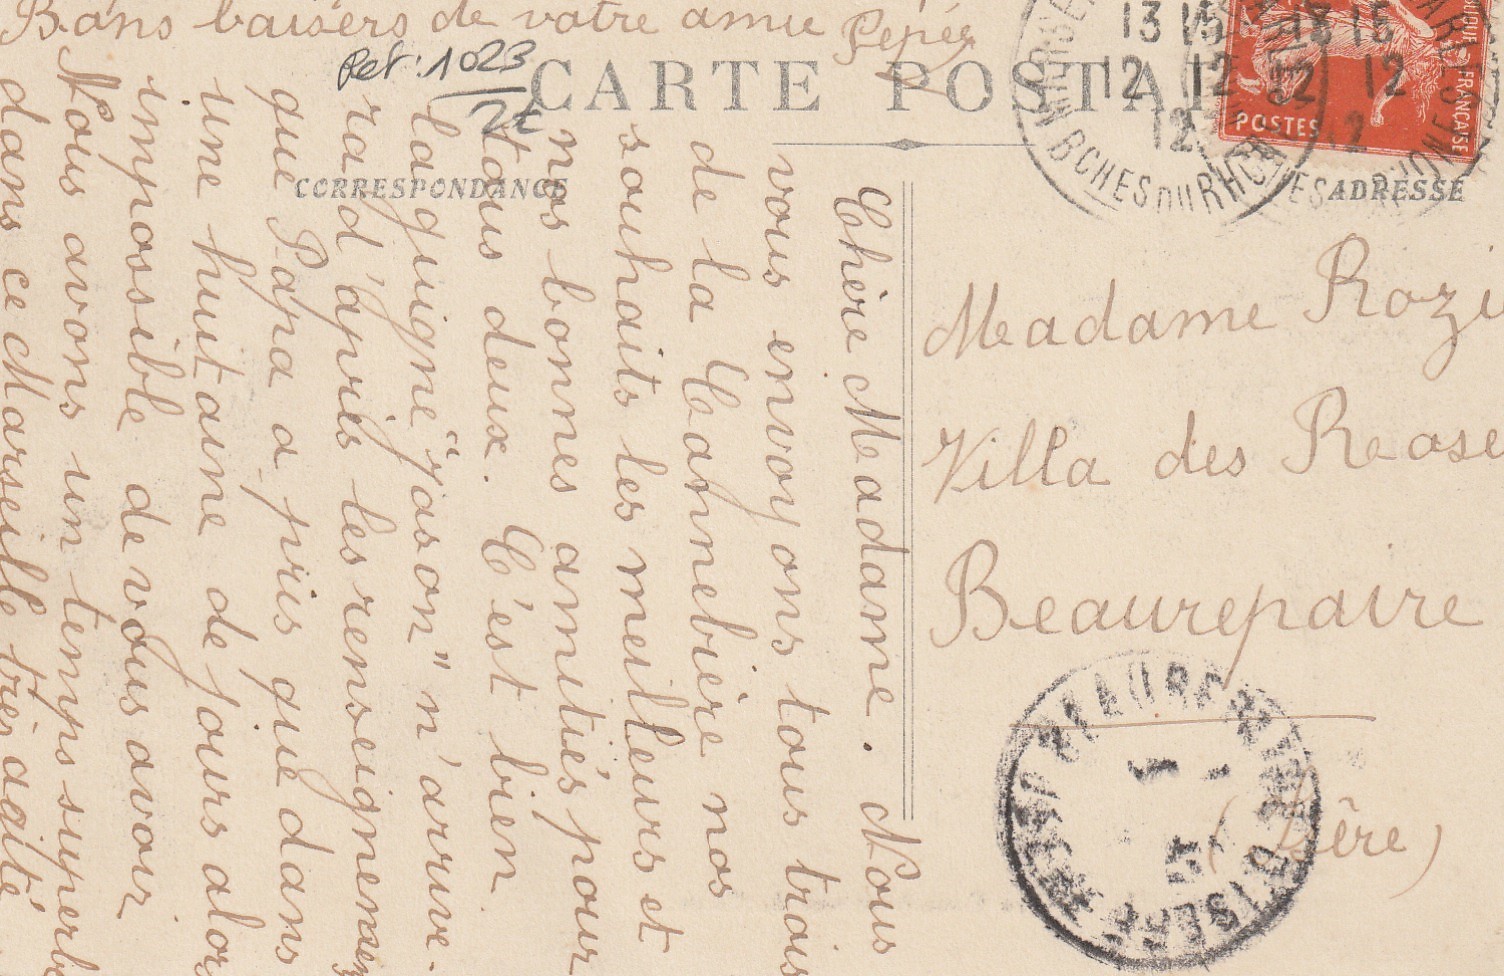 Bons baisers de votre amie Pepée
Ref: 1023
2€
CARTE POSTA
CORRESPONDANCE
ADRESSE
13 15
12 12
12
13 15
12 12
12
BCHES DU RHONE
POSTES
FRANÇAISE
Chère Madame. Nous
vous envoyons tous trois
de la Cannebière nos
souhaits les meilleurs et
nos bonnes amitiés pour
stous deux. C'est bien
la guigne "Jason" n'arrive-
ra d'après les renseignemen
que Papa a pris que dans
une huitaine de jours alor
impossible de vous avoir
Nous avons un temps superb
dans ce Marseille très agité
Madame Rozi
Villa des Rose
Beaurepaire
(Isère)
BEAUREPAIRE D'ISERE